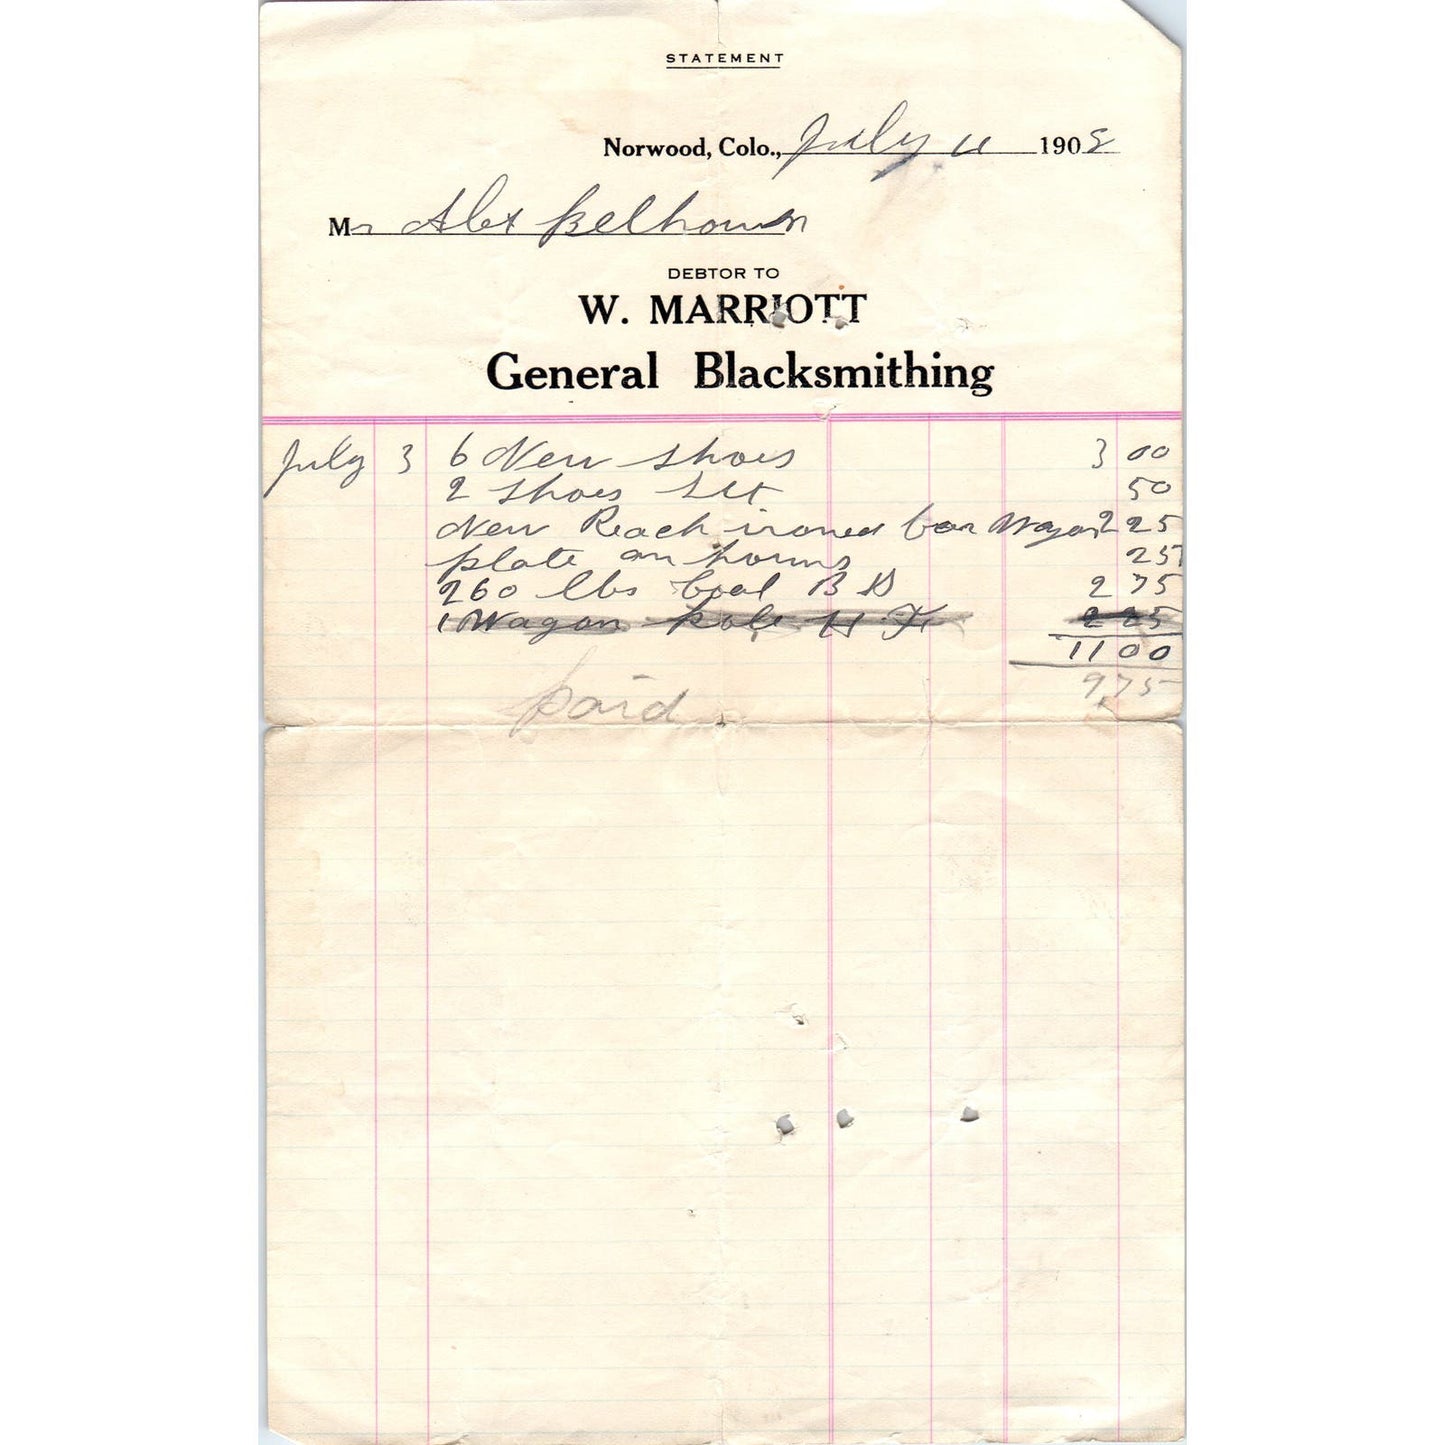 STATEMENT
Norwood, Colo., July 11 1908
Mr Alex
DEBTOR TO
W. MARRIOTT
General Blacksmithing
July 3 6 New Shoes 3 00
2 Shoes Set 50
New Reach ironed for Wagon 2 25
plate on 25
260 lbs Coal B S 2 75
1 Wagon pole H. F. 2 25
11 00
9 75
paid